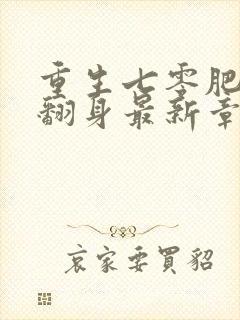 重生七零肥
翻身最新章
哀家要買貂